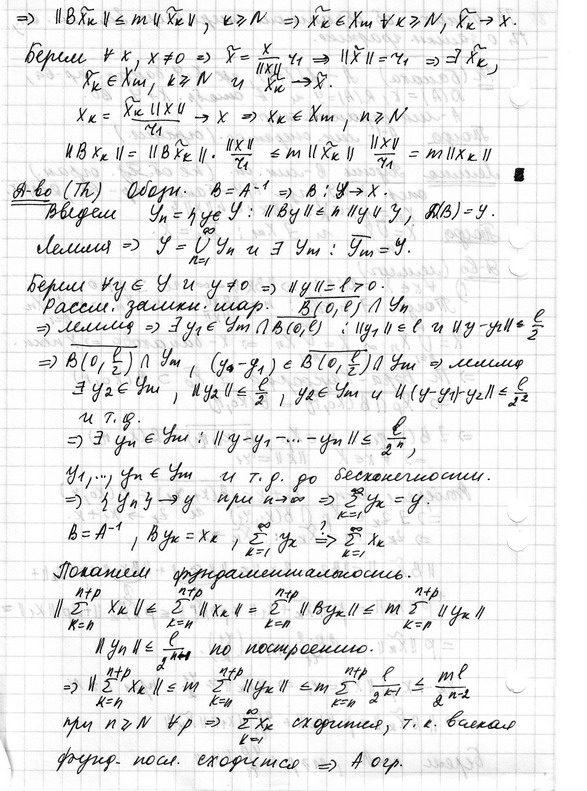 => ||Bx̃ₖ|| ≤ m||x̃ₖ||, k≥N => x̃ₖ ∈ Xₘ ∀k≥N, x̃ₖ → x.
Берем ∀x, x≠0 => x̃ = x/||x|| · r₁ => ||x̃|| = r₁ => ∃ x̃ₖ,
x̃ₖ ∈ Xₘ, k≥N и x̃ₖ → x̃.
xₖ = x̃ₖ||x||/r₁ → x => xₖ ∈ Xₘ, n≥N
||Bxₖ|| = ||Bx̃ₖ|| · ||x||/r₁ ≤ m||x̃ₖ|| ||x||/r₁ = m||xₖ||
Д-во (Th) Обозн. B = A⁻¹ => B: Y → X.
Введем Yₙ = {y∈Y : ||By|| ≤ n||y||}, Д(B) = Y.
Лемма => Y = ∪ₙ₌₁^∞ Yₙ и ∃ Yₘ : Ȳₘ = Y.
Берем ∀y ∈ Y и y≠0 => ||y|| = l > 0.
Рассм. замкн. шар. B(0,l) ∩ Yₙ
=> лемма => ∃ y₁ ∈ Yₘ ∩ B(0,l) : ||y₁|| ≤ l и ||y-y₁|| ≤ l/2
=> B(0, l/2) ∩ Yₘ, (y-y₁) ∈ B(0, l/2) ∩ Yₘ => лемма
∃ y₂ ∈ Yₘ, ||y₂|| ≤ l/2, y₂ ∈ Yₘ и ||(y-y₁)-y₂|| ≤ l/2²
и т.д.
=> ∃ yₙ ∈ Yₘ : ||y-y₁-...-yₙ|| ≤ l/2ⁿ,
y₁,..., yₙ ∈ Yₘ и т.д. до бесконечности.
=> {yₙ} → y при n→∞ => Σₖ₌₁^∞ yₖ = y.
B = A⁻¹, Byₖ = xₖ, Σₖ₌₁^∞ yₖ ?=> Σₖ₌₁^∞ xₖ
Покажем фундаментальность.
||Σₖ₌ₙⁿ⁺ᵖ xₖ|| ≤ Σₖ₌ₙⁿ⁺ᵖ ||xₖ|| = Σₖ₌ₙⁿ⁺ᵖ ||Byₖ|| ≤ m Σₖ₌ₙⁿ⁺ᵖ ||yₖ||
||yₙ|| ≤ l/2ⁿ⁻¹ по построению.
=> ||Σₖ₌ₙⁿ⁺ᵖ xₖ|| ≤ m Σₖ₌ₙⁿ⁺ᵖ ||yₖ|| ≤ m Σₖ₌ₙⁿ⁺ᵖ l/2ᵏ⁻¹ ≤ ml/2ⁿ⁻²
при n≥N ∀p => Σₖ₌₁^∞ xₖ сходится, т.к. всякая
фунд. посл. сходится => A огр.